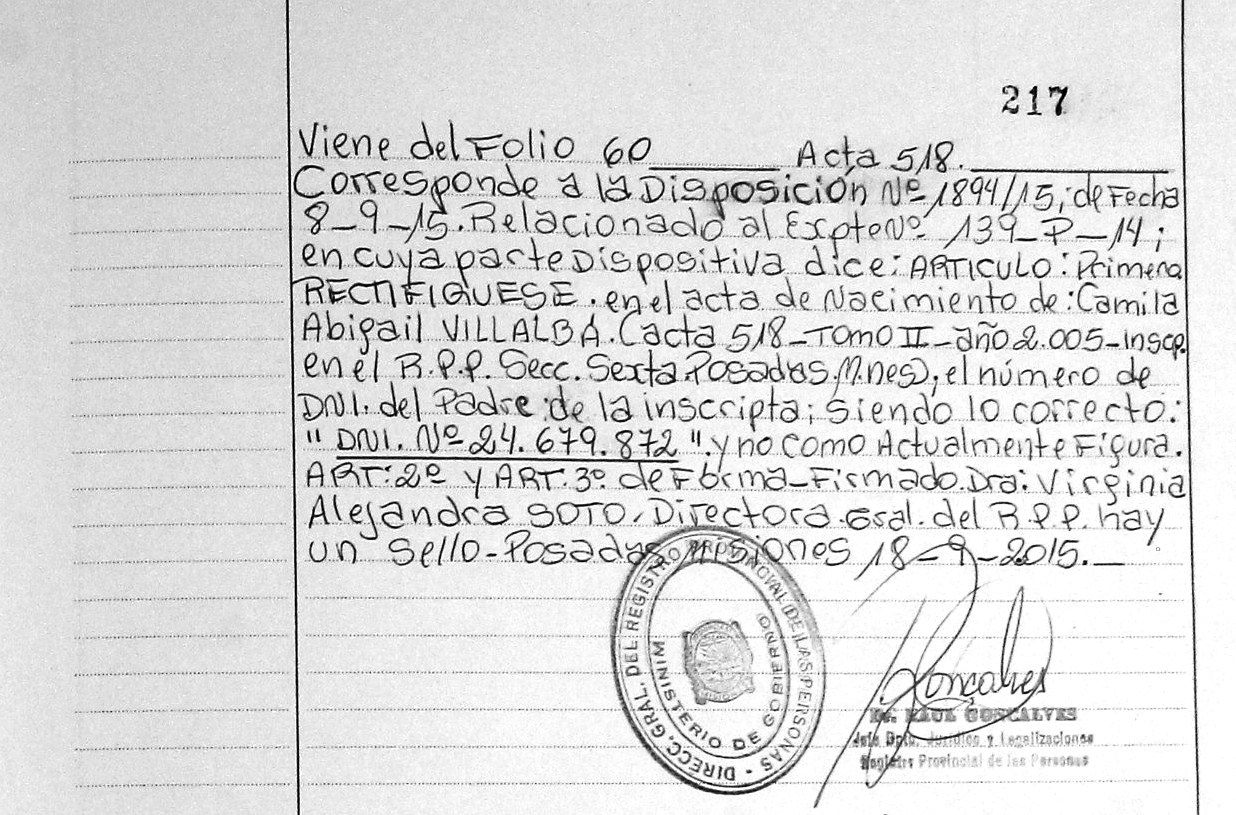 217
Viene del Folio 60 Acta 518.
Corresponde a la Disposición Nº 1894/15, de Fecha
8-9-15. Relacionado al Expte Nº 139-P-14;
en cuya parte Dispositiva dice: ARTICULO: Primero
RECTIFIQUESE. en el acta de Nacimiento de: Camila
Abigail VILLALBA. (acta 518-TOMO II-año 2.005-Inscp.
en el R.P.P. Secc. Sexta. Posadas. M.nes), el número de
DNI. del Padre de la inscripta; siendo lo correcto:
"DNI. Nº 24.679.872". y no como Actualmente Figura.
ART: 2º y ART. 3º. de Forma-Firmado. Dra: Virginia
Alejandra SOTO. Directora. Gral. del R.P.P. hay
un sello-Posadas Misiones 18-9-2015.-
DIRECC. GRAL. DEL REGISTRO PROVINCIAL DE LAS PERSONAS
MINISTERIO DE GOBIERNO
Goncalves
Dr. RAUL GONCALVES
Jefe Dpto. Jurídico y Legalizaciones
Registro Provincial de las Personas